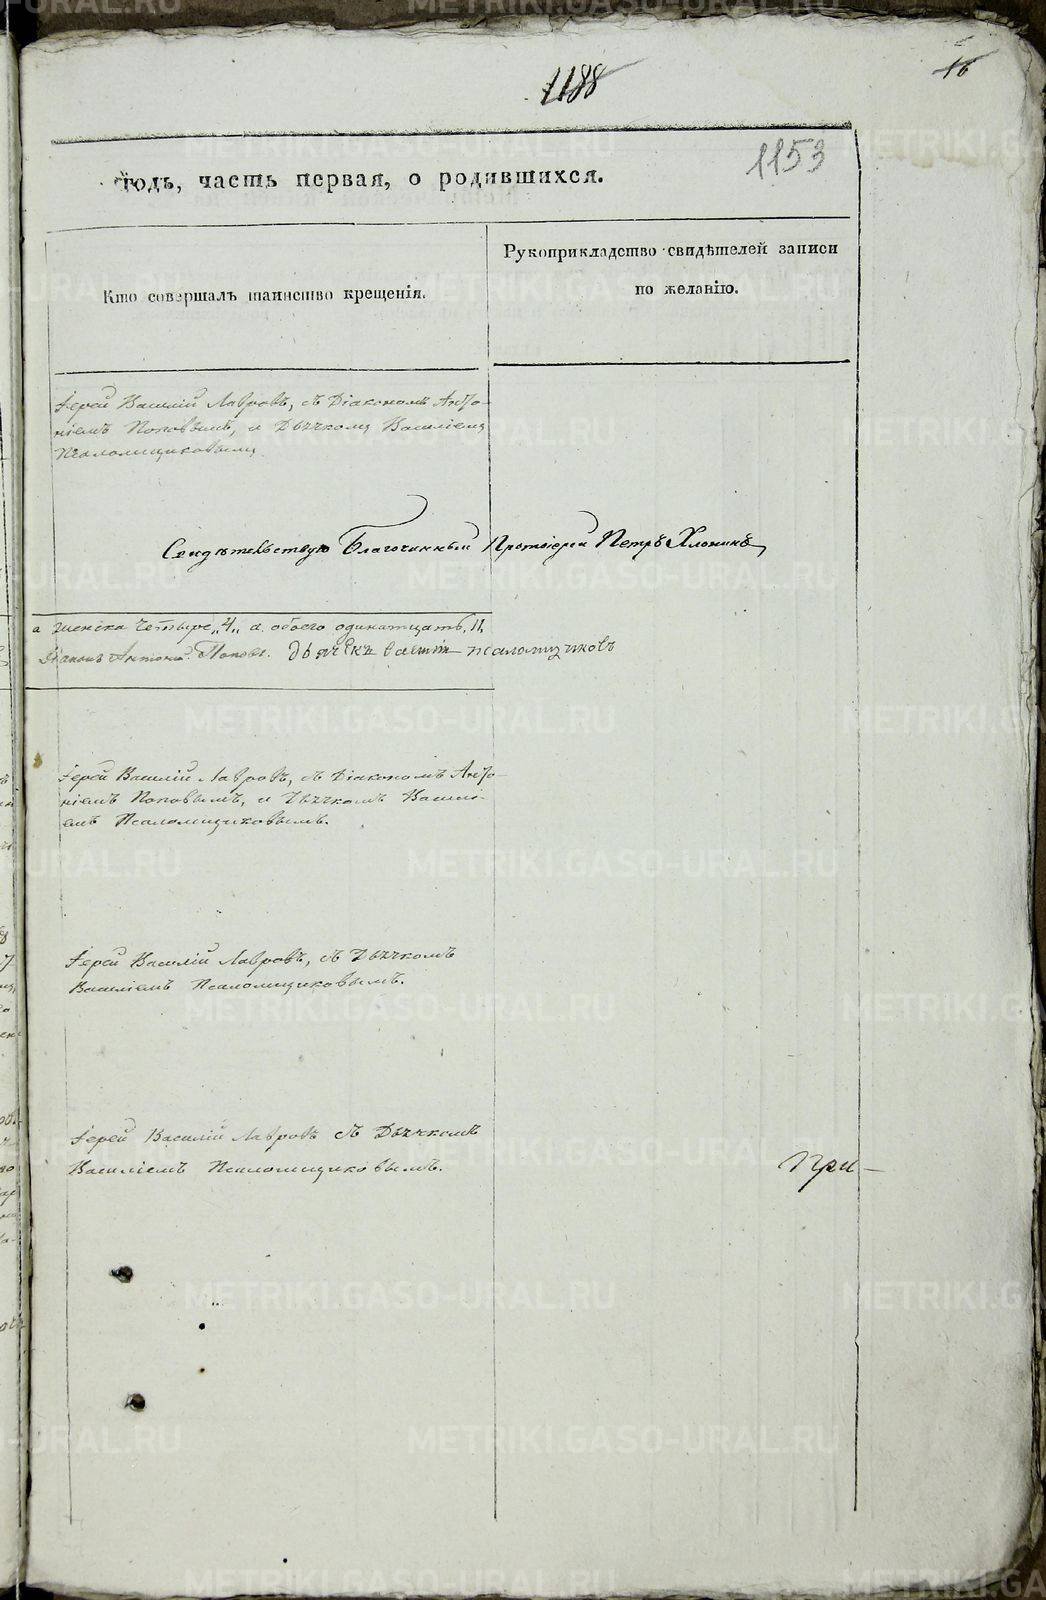 1188
16
1153
годъ, часть первая, о родившихся.
Кто совершалъ таинство крещенія.
Рукоприкладство свидѣтелей записи
по желанію.
Іерей Василій Лавровъ, съ Діакономъ Анто-
ніемъ Поповымъ, и Дьячкомъ Василіемъ
Псаломщиковымъ
Свидѣтельствую Благочинный Протоіерей Петръ
а женска четыре „4„ а обоего одинатцать, 11,
Діаконъ Антоній Поповъ. дьячекъ псаломщиковъ
Іерей Василій Лавровъ, съ Діакономъ Анто-
ніемъ Поповымъ, и Дьячкомъ Васи-
емъ Псаломщиковымъ.
Іерей Василій Лавровъ, съ Дьячкомъ
Василіемъ Псаломщиковымъ.
Іерей Василій Лавровъ съ Дьячкомъ
Василіемъ Псаломщиковымъ.
При-
METRIKI.GASO-URAL.RU